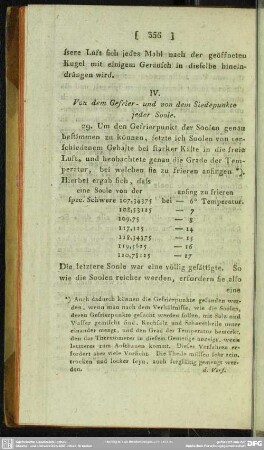 ( 356 )
ssere Luft sich jedes Mahl nach der geöffneten
Kugel mit einigem Geräusch in dieselbe hinein-
drängen wird.
IV.
Von dem Gefrier- und von dem Siedepunkte
jeder Soole.
29. Um den Gefrierpunkt der Soolen genau
bestimmen zu können, setzte ich Soolen von ver-
schiedenem Gehalte bei starker Kälte in die freie
Luft, und beobachtete genau die Grade der Tem-
peratur, bei welchen sie zu frieren anfingen *).
Hierbei ergab sich, dass
eine Soole von der anfing zu frieren
spec. Schwere 107,34375 bei — 6° Temperatur.
108,53125 — 7
109,75 — 8
117,125 — 14
118,34375 — 15
119,5625 — 16
120,78125 — 17
Die letztere Soole war eine völlig gesättigte. So
wie die Soolen reicher werden, erfordern sie also
eine
*) Auch dadurch können die Gefrierpunkte gefunden wer-
den, wenn man nach dem Verhältnisse, wie die Soolen,
deren Gefrierpunkte gesucht werden sollen, aus Salz und
Wasser gemischt sind, Kochsalz und Schneetheile unter
einander mengt, und den Grad der Temperatur bemerkt,
den das Thermometer in diesem Gemenge anzeigt, wenn
letzteres zum Aufthauen kommt. Dieses Verfahren er-
fordert aber viele Vorsicht. Die Theile müssen sehr fein,
trocken und locker seyn, auch sorgfältig gemengt wer-
den. d. Verf.